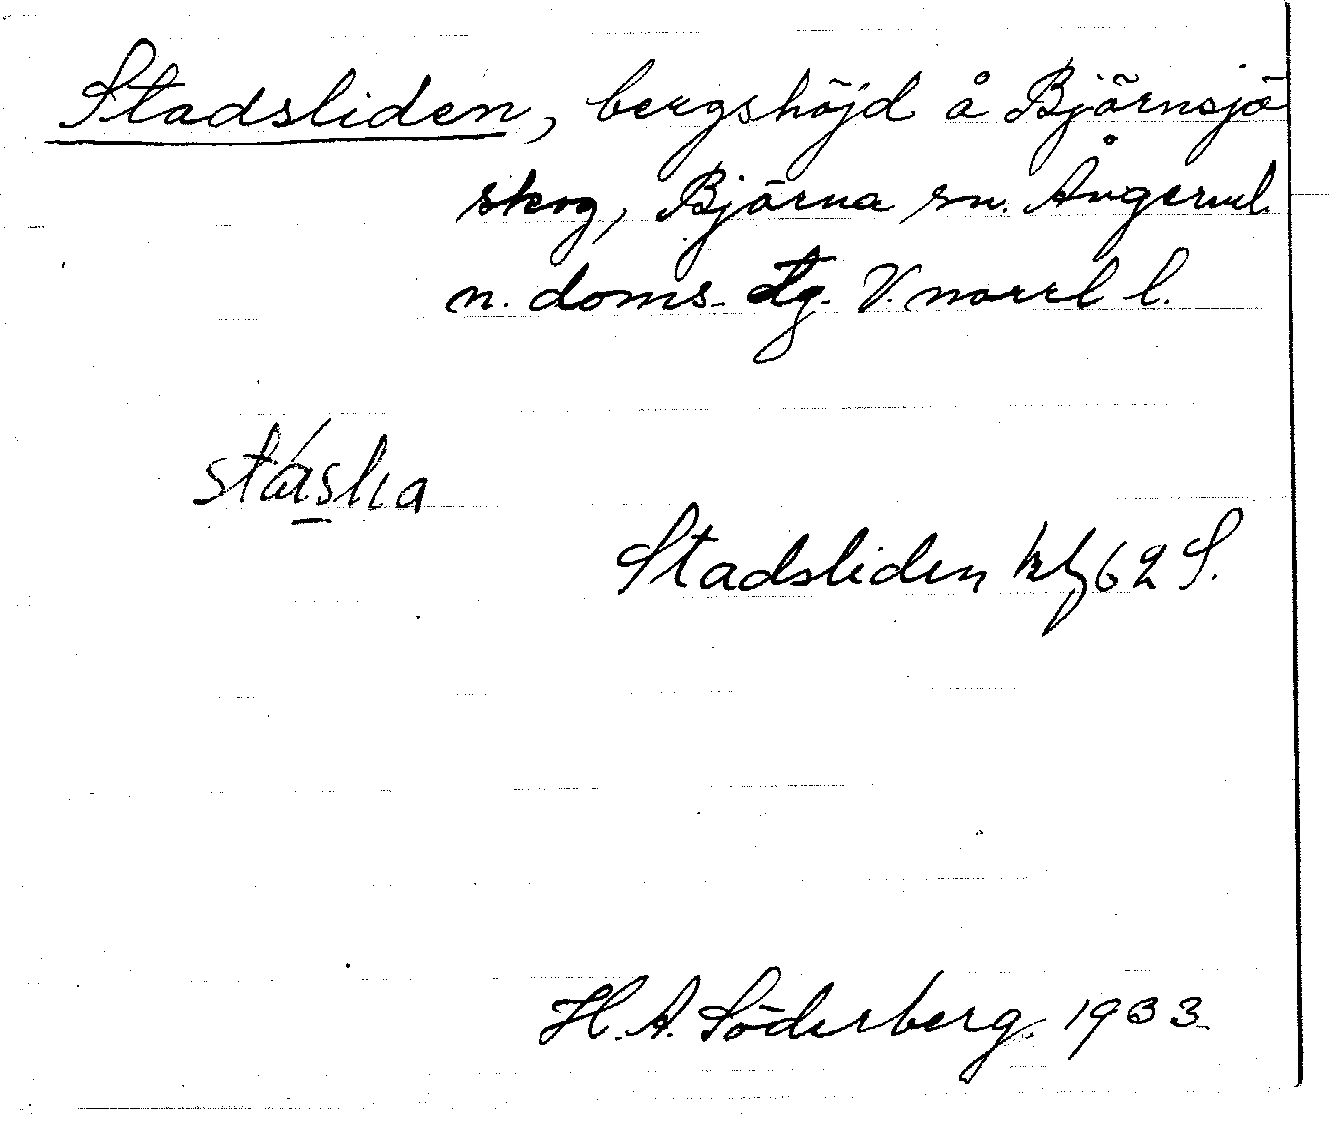 Stadsliden, bergshöjd å Björnsjö
skog, Björna sn. Ångerml.
n. doms. tg. V. norrl l.
Stadsliden kbl 62 S.
H. A. Söderberg. 1933